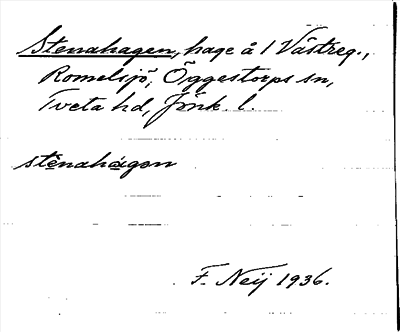 Stenahagen, hage å 1 Västreg.,
Romelsjö, Öggestorps sn,
Tveta hd, Jönk. l.
stènahágen
F. Neij 1936.